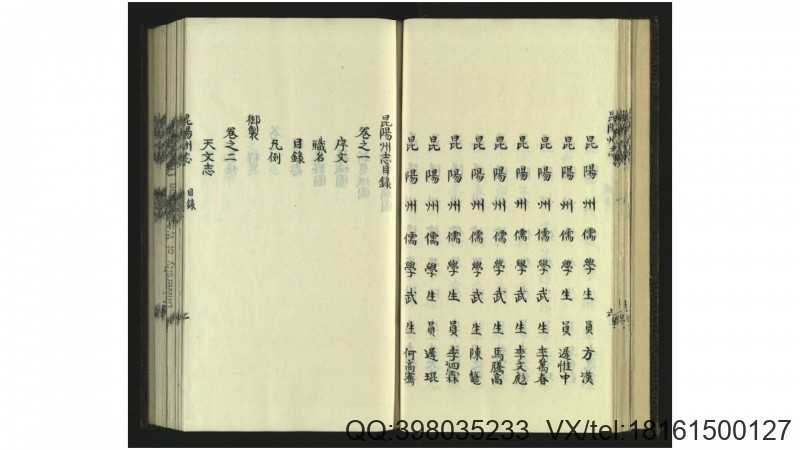 昆陽州志
昆陽州儒學生員方漢
昆陽州儒學生員遲惟中
昆陽州儒學武生李萬春
昆陽州儒學武生李文彪
昆陽州儒學武生馬騰高
昆陽州儒學武生陳
昆陽州儒學生員李泗霖
昆陽州儒學生員遲琨
昆陽州儒學武生何高
昆陽州志目錄
卷之一
序文
職名
目錄
凡例
御製
卷之二
天文志
昆陽州志 目錄
QQ:398035233 VX/tel:18161500127